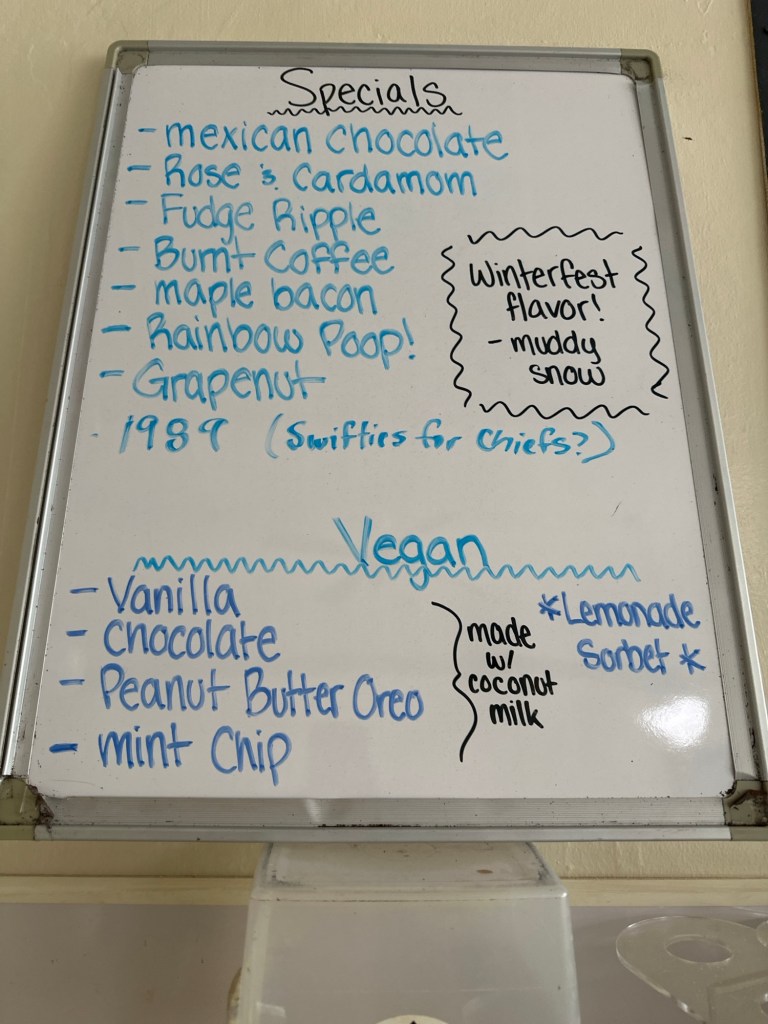 Specials
- mexican chocolate
- Rose & Cardamom
- Fudge Ripple
- Burnt Coffee
- maple bacon
- Rainbow Poop!
- Grapenut
- 1989 (Swifties for Chiefs?)
Winterfest
flavor!
- muddy
snow
Vegan
- Vanilla
- Chocolate
- Peanut Butter Oreo
- mint Chip
made
w/
coconut
milk
*Lemonade
Sorbet *